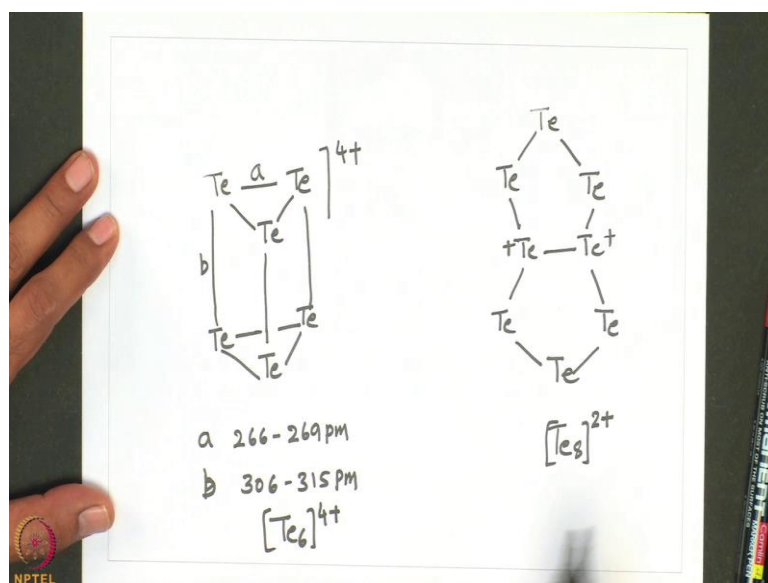 Te a Te ]4+
Te
b
Te Te
Te
a 266-269pm
b 306-315pm
[Te6]4+
Te
Te Te
+Te Te+
Te Te
Te
[Te8]2+
NPTEL